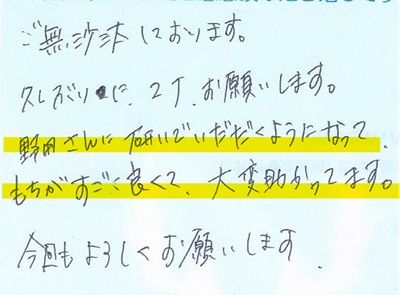 ご無沙汰しております。
久しぶりに、2丁、お願いします。
野田さんに研いでいだだくようになって、
もちがすごく良くて、大変助かってます。
今回もよろしくお願いします.